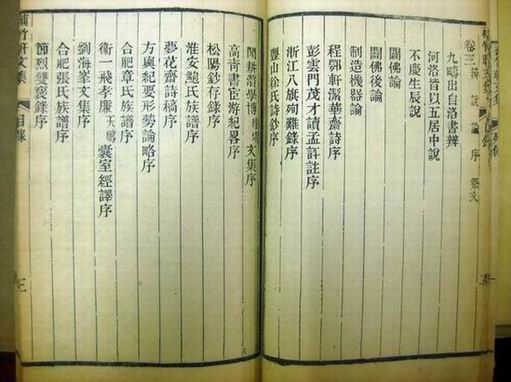 卷三 辨 說 論 序
九疇出自洛書辨
河洛皆以五居中說
不慶生辰說
闢佛論
闢佛後論
制造機器論
程郭軒潔華齋詩序
彭雲門茂才讀孟許註序
浙江八旗殉難錄序
豐山徐氏詩鈔序
學博 文集序
高青書宦游紀畧序
松陽鈔存錄序
淮安鮑氏族譜序
夢花齋詩稿序
方輿紀要形勢論略序
合肥章氏族譜序
衛一飛孝廉天鵬囊室經譯序
劉海峯文集序
合肥張氏族譜序
節烈雙褒錄序
竹軒文集 目錄 三